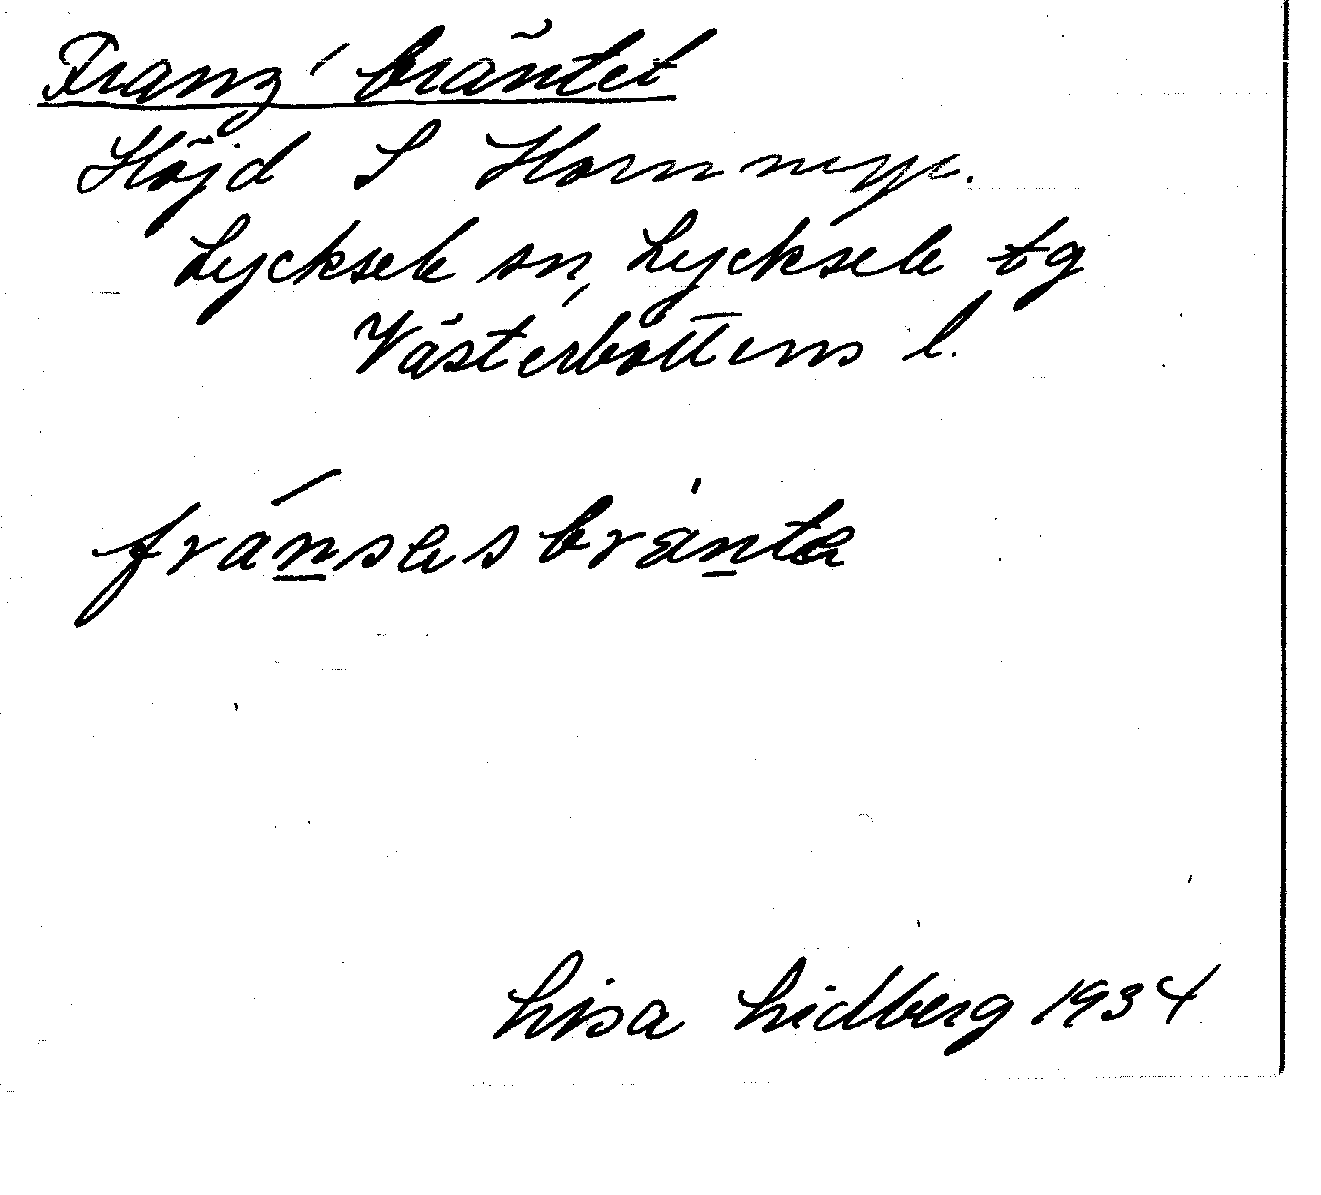 Franz' bräntet
Höjd S Hornmyr.
Lycksele sn, Lycksele tg
Västerbottens l.
fránsesbränta
Lisa Lidberg 1934